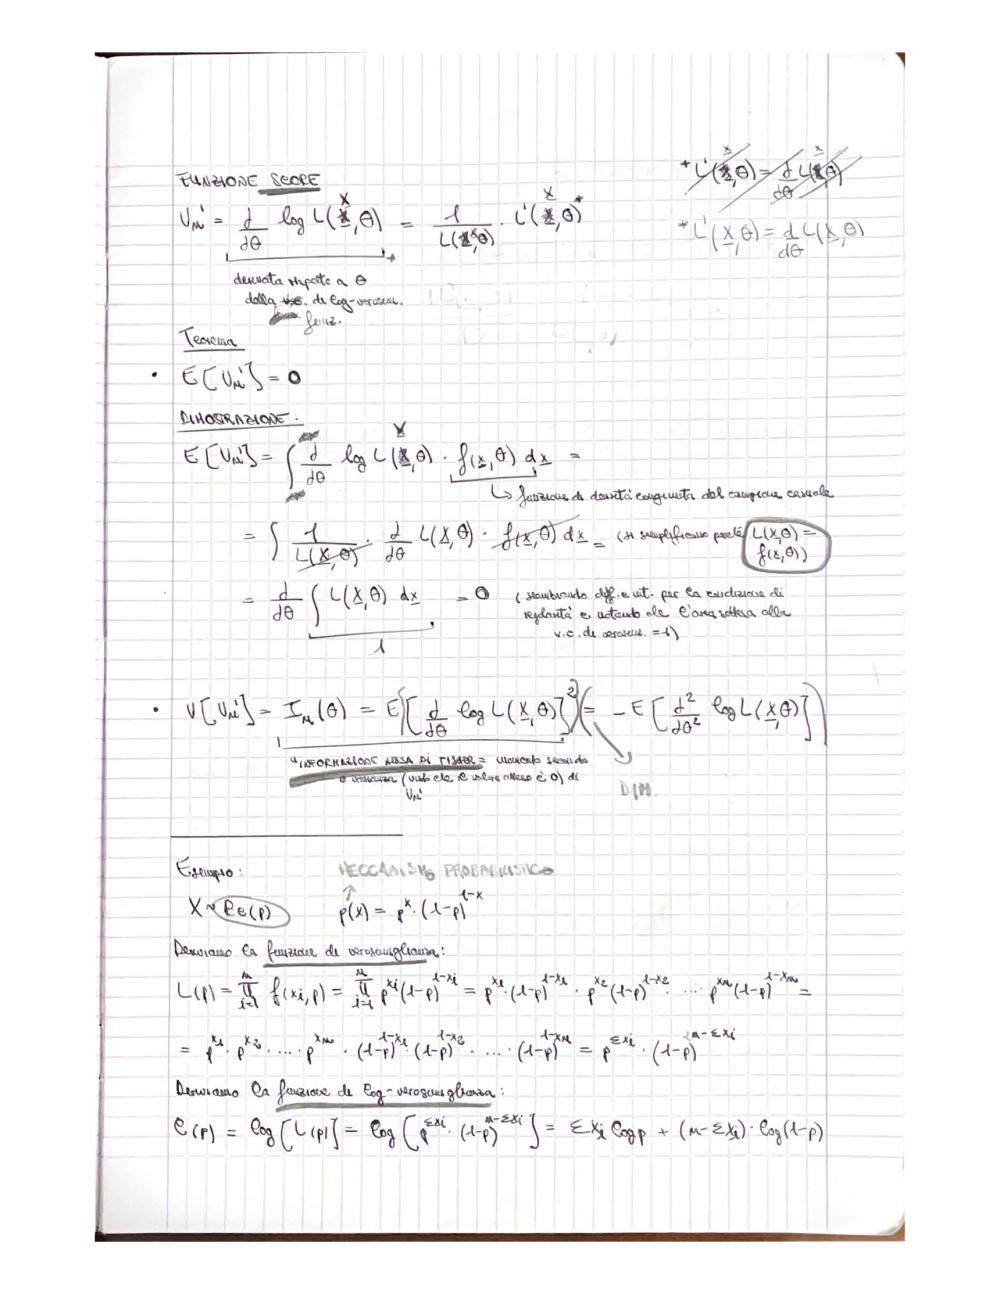 FUNZIONE SCORE
*L'(X,θ) = d/dθ L(X,θ)
Un' = d/dθ log L(X,θ) = 1/L(X,θ) · L'(X,θ)*
*L'(X,θ) = d/dθ L(X,θ)
derivata rispetto a θ
della di log-verosim.
funz.
Teorema
• E[Un'] = 0
DIMOSTRAZIONE:
E[Un'] = ∫ d/dθ log L(X,θ) · f(x,θ) dx =
↳ funzione di densità congiunta del campione casuale
= ∫ 1/L(X,θ) · d/dθ L(X,θ) · f(x,θ) dx = (si semplificano perché L(X,θ) = f(x,θ))
= d/dθ ∫ L(X,θ) dx = 0 (scambiando diff. e int. per la condizione di
regolarità e notando che l'area sottesa alla
v.c. di verosim. = 1)
1
• V[Un'] = In(θ) = E{[d/dθ log L(X,θ)]²} (= -E[d²/dθ² log L(X,θ)])
"INFORMAZIONE ATTESA DI FISHER = momento secondo
o varianza (visto che il valore atteso è 0) di
Un'
DIM.
Esempio:
MECCANISMO PROBABILISTICO
X ~ Be(p) p(x) = p^x · (1-p)^1-x
Deriviamo la funzione di verosimiglianza:
L(p) = ∏ i=1 n f(xi,p) = ∏ i=1 n p^xi (1-p)^1-xi = p^x1 · (1-p)^1-x1 · p^x2 (1-p)^1-x2 · ... · p^xn (1-p)^1-xn =
= p^x1 · p^x2 · .... · p^xn · (1-p)^1-x1 · (1-p)^1-x2 · .... · (1-p)^1-xn = p^Σxi · (1-p)^n-Σxi
Deriviamo la funzione di log-verosimiglianza:
ℓ(p) = log[L(p)] = log[p^Σxi · (1-p)^n-Σxi] = Σxi log p + (n-Σxi) · log(1-p)